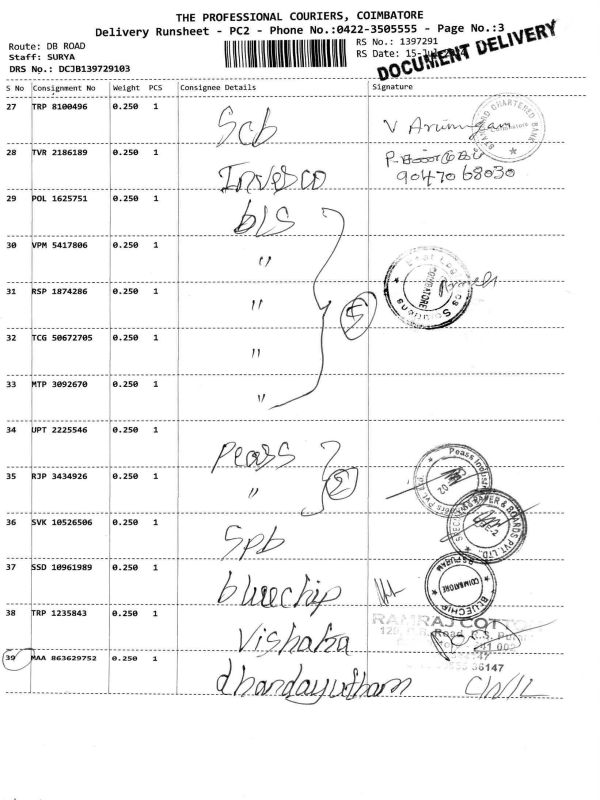 THE PROFESSIONAL COURIERS, COIMBATORE
Delivery Runsheet - PC2 - Phone No.:0422-3505555 - Page No.:3
Route: DB ROAD
Staff: SURYA
DRS No.: DCJB139729103
RS No.: 1397291
RS Date: 15-Jul
DOCUMENT DELIVERY
S No Consignment No Weight PCS Consignee Details Signature
27 TRP 8100496 0.250 1 Scb V Arumugam
STANDARD CHARTERED BANK
28 TVR 2186189 0.250 1 Invesco
9047068030
29 POL 1625751 0.250 1 bLS
30 VPM 5417806 0.250 1 "
COIMBATORE
31 RSP 1874286 0.250 1 " 5
32 TCG 50672705 0.250 1 "
33 MTP 3092670 0.250 1 "
34 UPT 2225546 0.250 1 Peass
Peass Indus
35 RJP 3434926 0.250 1 " 2
36 SVK 10526506 0.250 1 Spb
PAPER & BOARDS PVT. LTD.
37 SSD 10961989 0.250 1 bluechip
BLUECHIP
R.S.PURAM
COIMBATORE
38 TRP 1235843 0.250 1 Vishaka
RAMRAJ COTTON
39 MAA 863629752 0.250 1 dhandayutham
36147